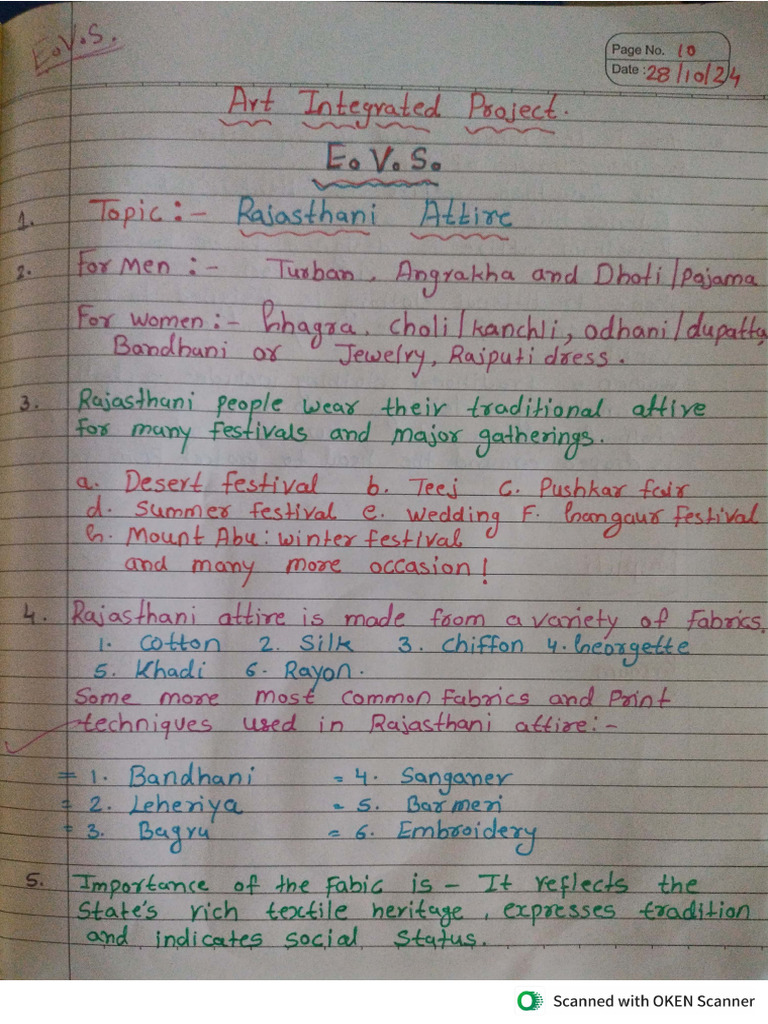 E.V.S.
Page No. 10
Date : 28/10/24
Art Integrated Project.
E.V.S.
1. Topic :- Rajasthani Attire
2. For Men :- Turban, Angrakha and Dhoti/pajama
For women :- Ghagra, choli/kanchli, odhani/dupatta,
Bandhani or Jewelry, Rajputi dress.
3. Rajasthani people wear their traditional attire
for many festivals and major gatherings.
a. Desert festival b. Teej c. Pushkar fair
d. Summer festival e. wedding F. Gangaur festival
G. Mount Abu: winter festival
and many more occasion!
4. Rajasthani attire is made from a variety of Fabrics.
1. Cotton 2. Silk 3. Chiffon 4. Georgette
5. Khadi 6. Rayon.
Some more most common Fabrics and Print
techniques used in Rajasthani attire:-
= 1. Bandhani = 4. Sanganer
= 2. Leheriya = 5. Barmeri
= 3. Bagru = 6. Embroidery
5. Importance of the Fabic is - It reflects the
State's rich textile heritage, expresses tradition
and indicates social status.
Scanned with OKEN Scanner